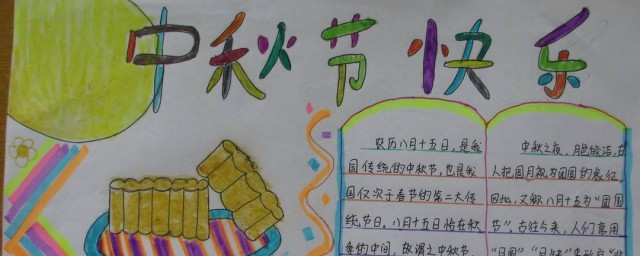 中秋节快乐
农历八月十五日,是我
国传统的中秋节,也是我
国仅次于春节的第二大传
统节日。八月十五日恰在秋
季的中间,故谓之中秋节。
中秋之夜,月色皎洁,古
人把圆月视为团圆的象征
因此,又称八月十五为“团圆
节”。古往今来,人们常用
“月圆”“月缺”来形容“悲